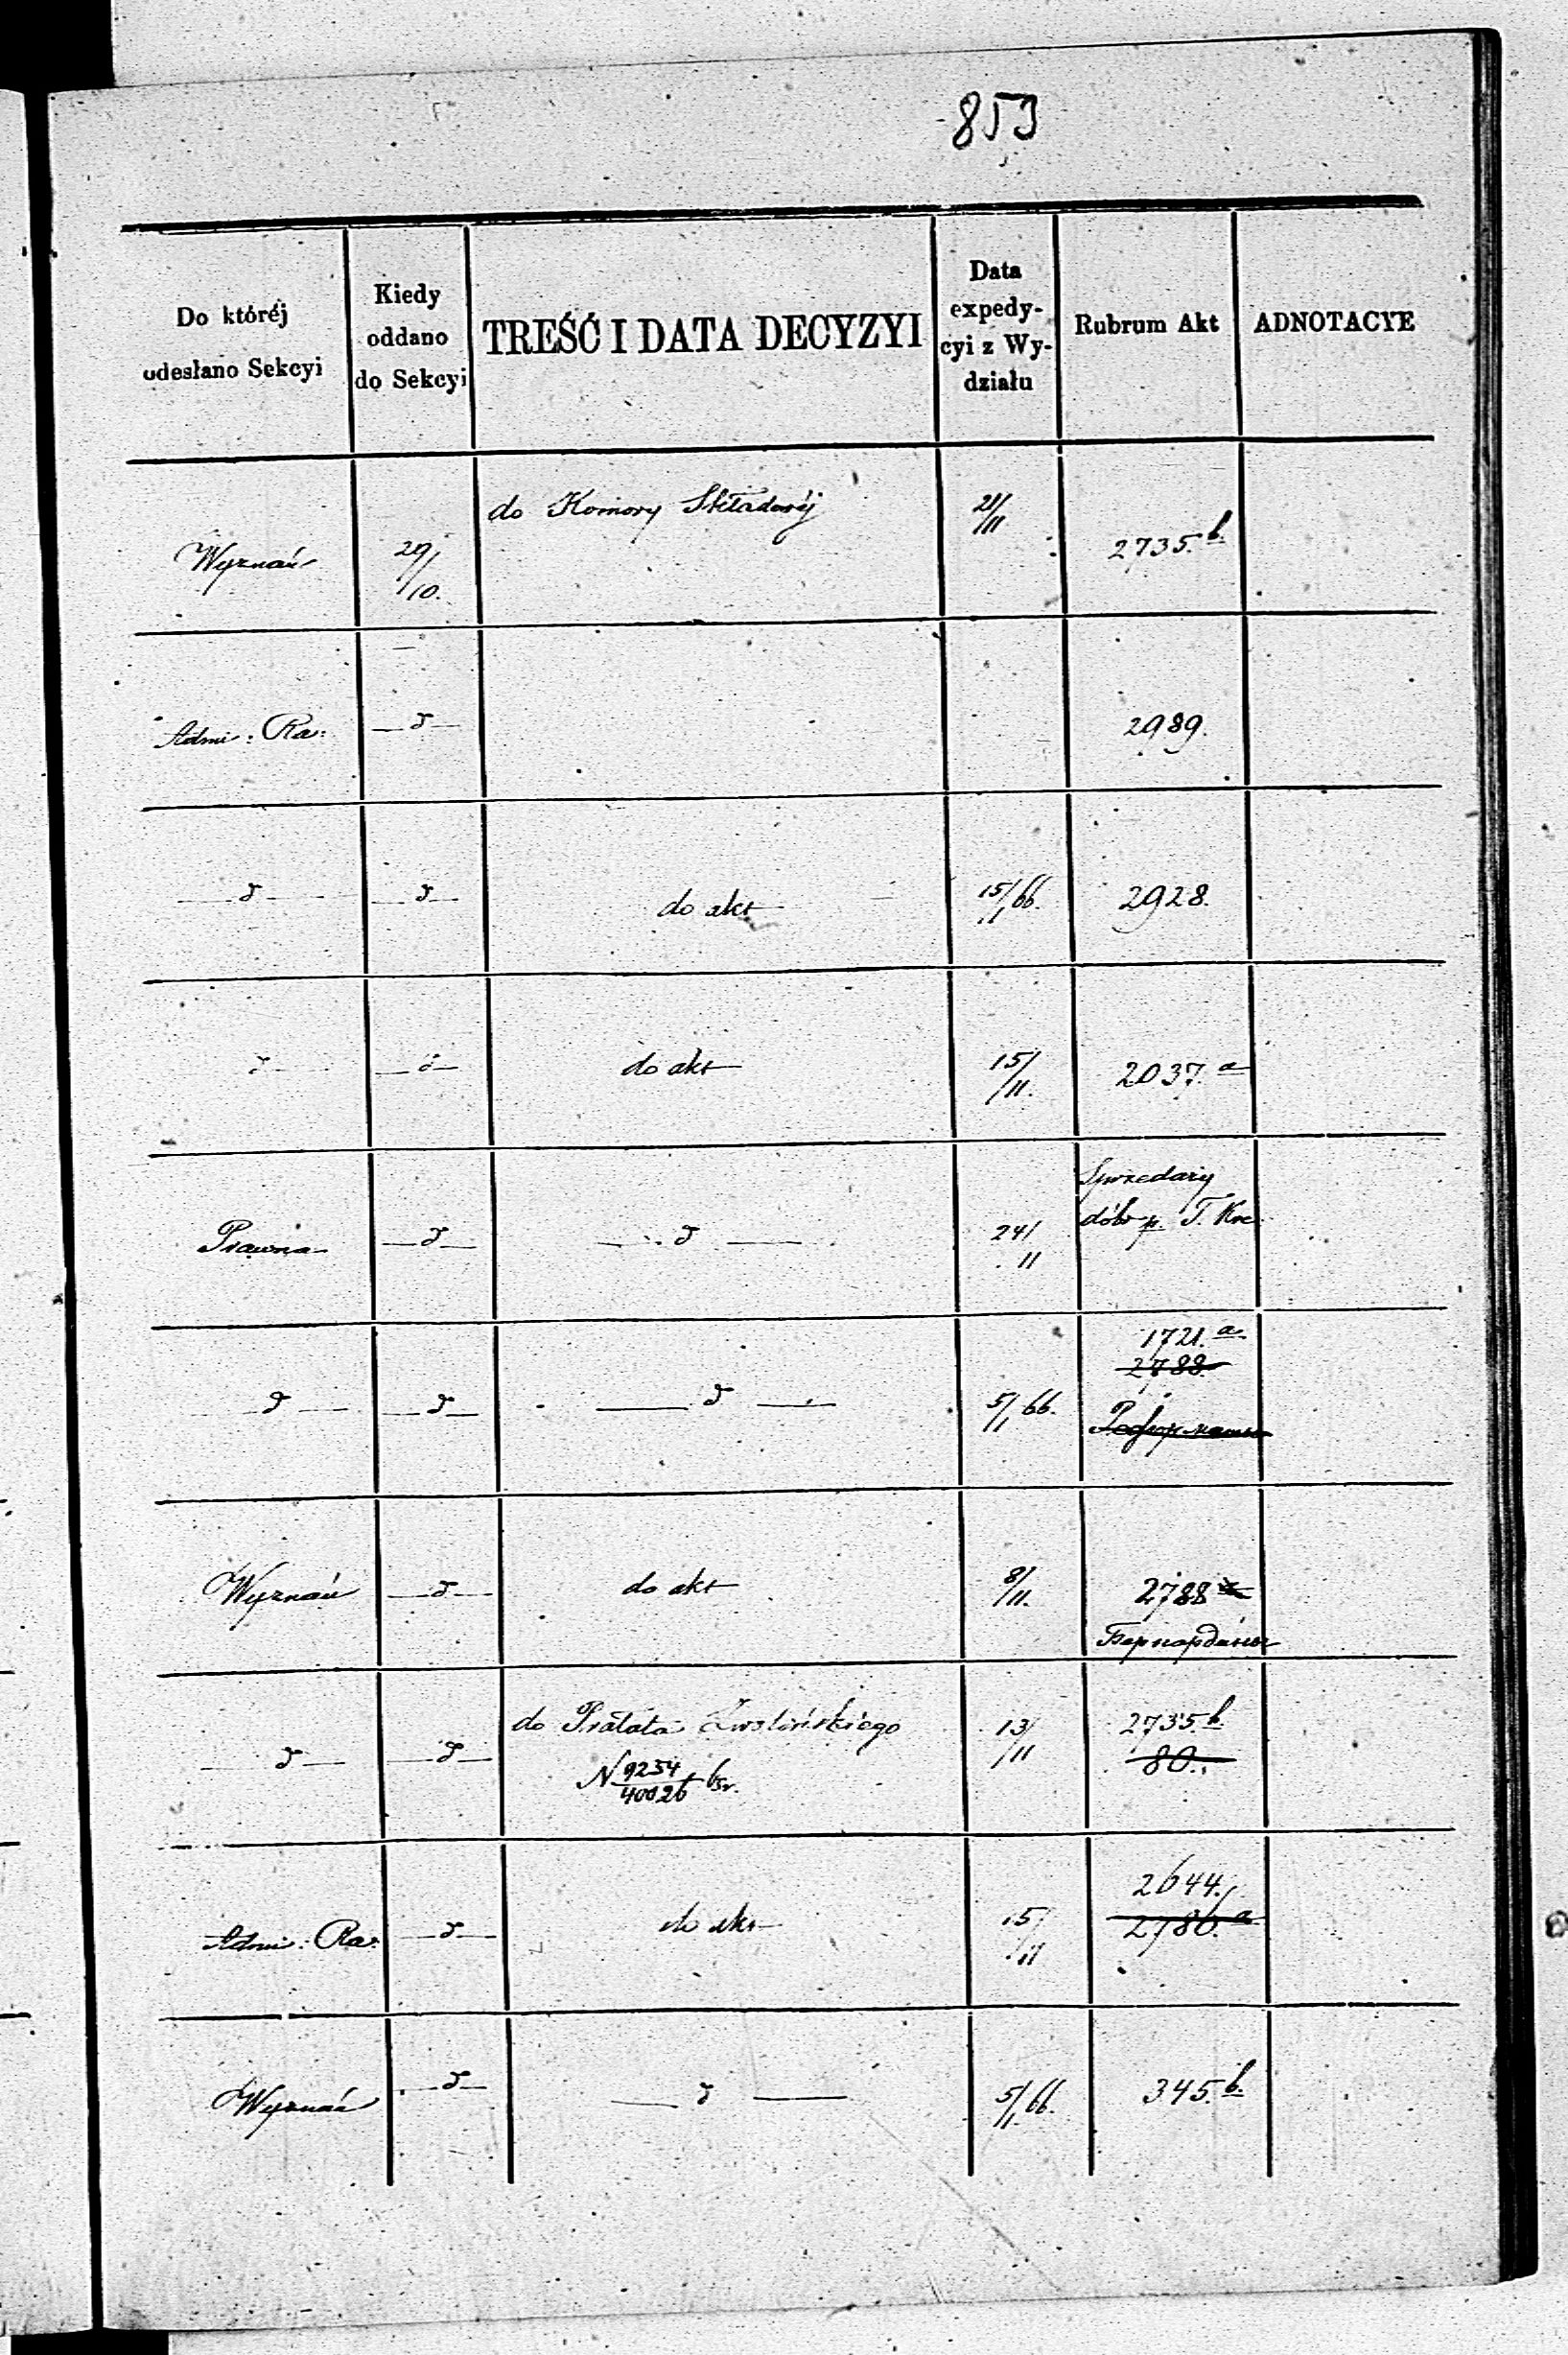 853
Do któréj
odesłano Sekcyi
Kiedy
oddano
do Sekcyi
TREŚĆ I DATA DECYZYI
Data
expedy-
cyi z Wy-
działu
Rubrum Akt
ADNOTACYE
Wyznań 29/10. do Komory Składowéj 21/11 2735.b.
Admi: Ra: —d— 2989.
—d— —d— do akt 15/1 66. 2928.
d —d— do akt 15/11. 2037.a
Prawna —d— —d— 24/11 Sprzedaży
dóbr p. T. Kre
1721.a
2788.
—d— —d— —d— 5/1 66. Реформаты
Wyznań —d— do akt 8/11. 2788
Бернардины
—d— —d— do Prałata Zwolińskiego 13/11 2735.b.
N 9254/40026 80.
2644.
Admi: Ra: —d— do akt 15/11 2786.a
Wyznań —d— —d— 5/1 66. 345.b.